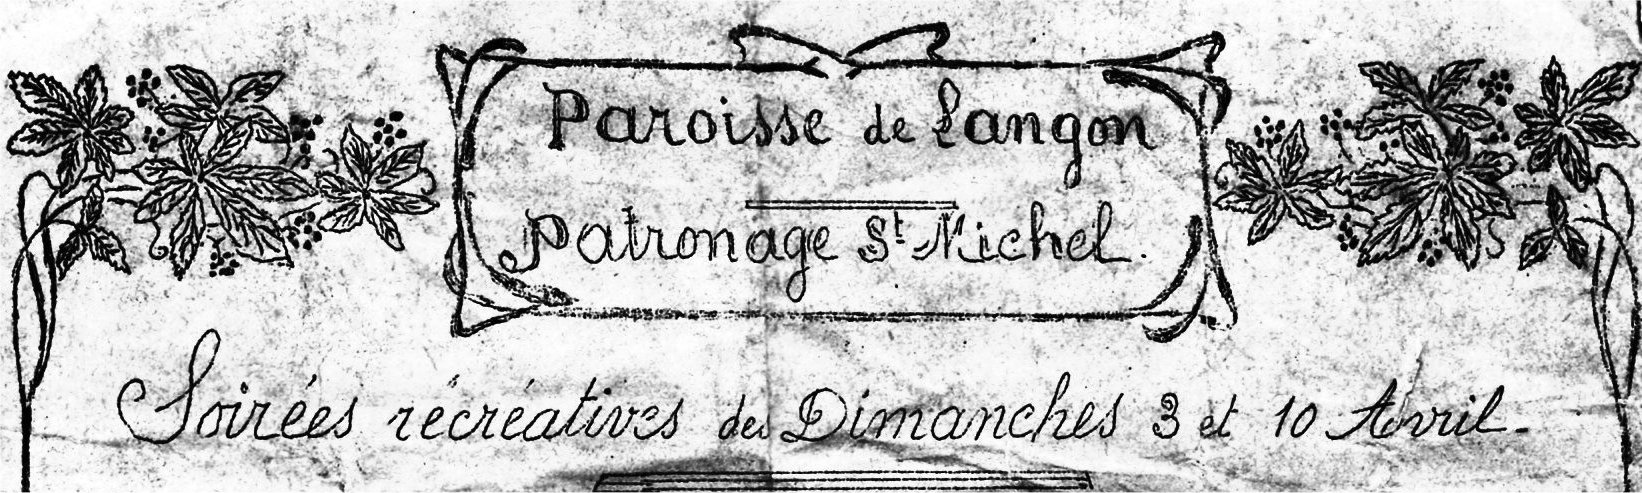 Paroisse de Langon
Patronage St Michel.
Soirées récréatives des Dimanches 3 et 10 Avril.